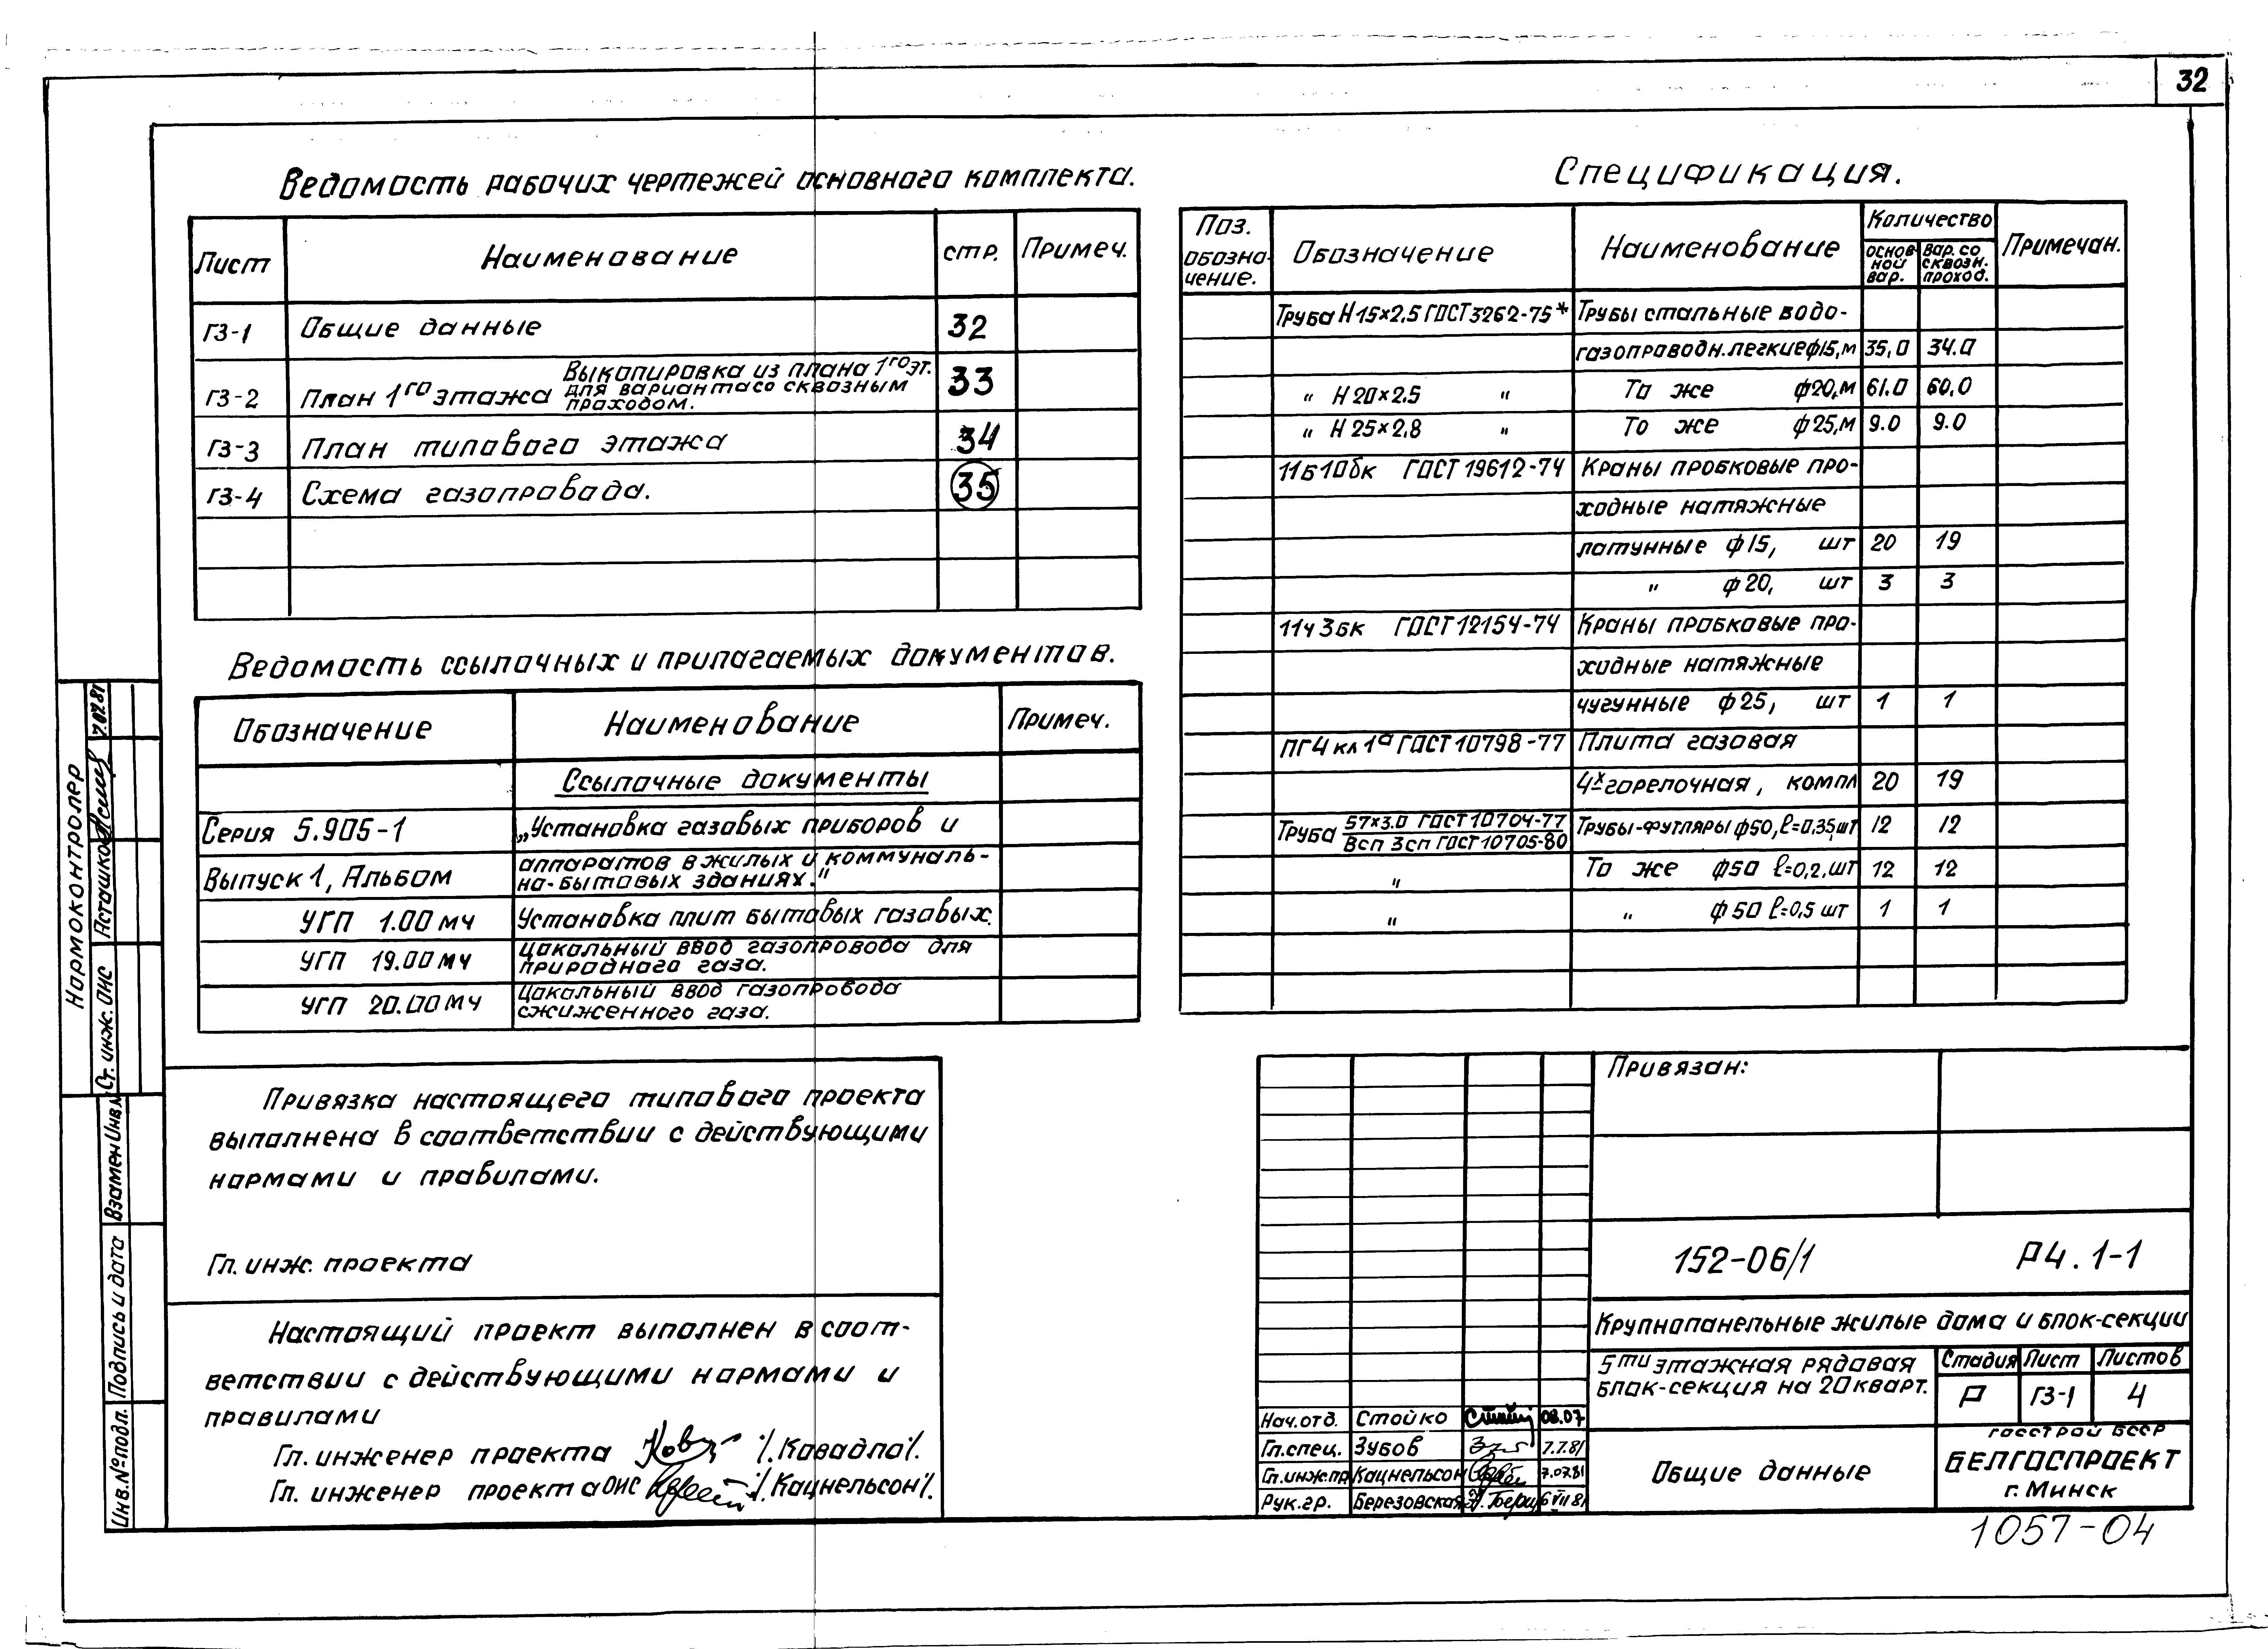 32
Ведомость рабочих чертежей основного комплекта.
Лист Наименование стр. Примеч.
ГЗ-1 Общие данные 32
ГЗ-2 План 1го этажа Выкопировка из плана 1го эт. для варианта со сквозным проходом. 33
ГЗ-3 План типового этажа 34
ГЗ-4 Схема газопровода. 35
Ведомость ссылочных и прилагаемых документов.
Обозначение Наименование Примеч.
Ссылочные документы
Серия 5.905-1 „Установка газовых приборов и
Выпуск 1, Альбом аппаратов в жилых и коммуналь-
но-бытовых зданиях."
УГП 1.00 мч Установка плит бытовых газовых.
УГП 19.00 мч Цокольный ввод газопровода для
природного газа.
УГП 20.00 мч Цокольный ввод газопровода
сжиженного газа.
Спецификация.
Поз. обозна-чение. Обозначение Наименование Количество Примечан.
основ-ной вар. вар. со сквозн. проход.
Труба Н 15×2,5 ГОСТ 3262-75* Трубы стальные водо-
газопроводн. легкие ф15, м 35,0 34.0
" Н 20×2.5 " То же ф20, м 61.0 60,0
" Н 25×2,8 " То же ф25, м 9.0 9.0
11Б10бк ГОСТ 19612-74 Краны пробковые про-
ходные натяжные
латунные ф15, шт 20 19
" ф20, шт 3 3
11ч3бк ГОСТ 12154-74 Краны пробковые про-
ходные натяжные
чугунные ф25, шт 1 1
ПГ4 кл 1а ГОСТ 10798-77 Плита газовая
4х горелочная, компл 20 19
Труба 57×3.0 ГОСТ 10704-77 / Всп 3сп ГОСТ 10705-80 Трубы-футляры ф50, ℓ=0,35, шт 12 12
" То же ф50 ℓ=0,2, шт 12 12
" " ф50 ℓ=0,5 шт 1 1
Привязка настоящего типового проекта
выполнена в соответствии с действующими
нормами и правилами.
Гл. инж. проекта
Настоящий проект выполнен в соот-
ветствии с действующими нормами и
правилами
Гл. инженер проекта /. Ковадло /.
Гл. инженер проекта ОИС /. Кацнельсон /.
Нормоконтролер
Ст. инж. ОИС Асташко 7.07.81
Взамен Инв. №
Подпись и дата
Инв. № подл.
Привязан:
152-06/1 Р4.1-1
Крупнопанельные жилые дома и блок-секции
5ти этажная рядовая
блок-секция на 20 кварт.
Стадия Лист Листов
Р ГЗ-1 4
Общие данные
Госстрой БССР
БЕЛГОСПРОЕКТ
г. Минск
Нач. отд. Стойко 08.07
Гл. спец. Зубов 7.7.81
Гл. инж. пр Кацнельсон 7.07.81
Рук. гр. Березовская 6 VII 81
1057-04